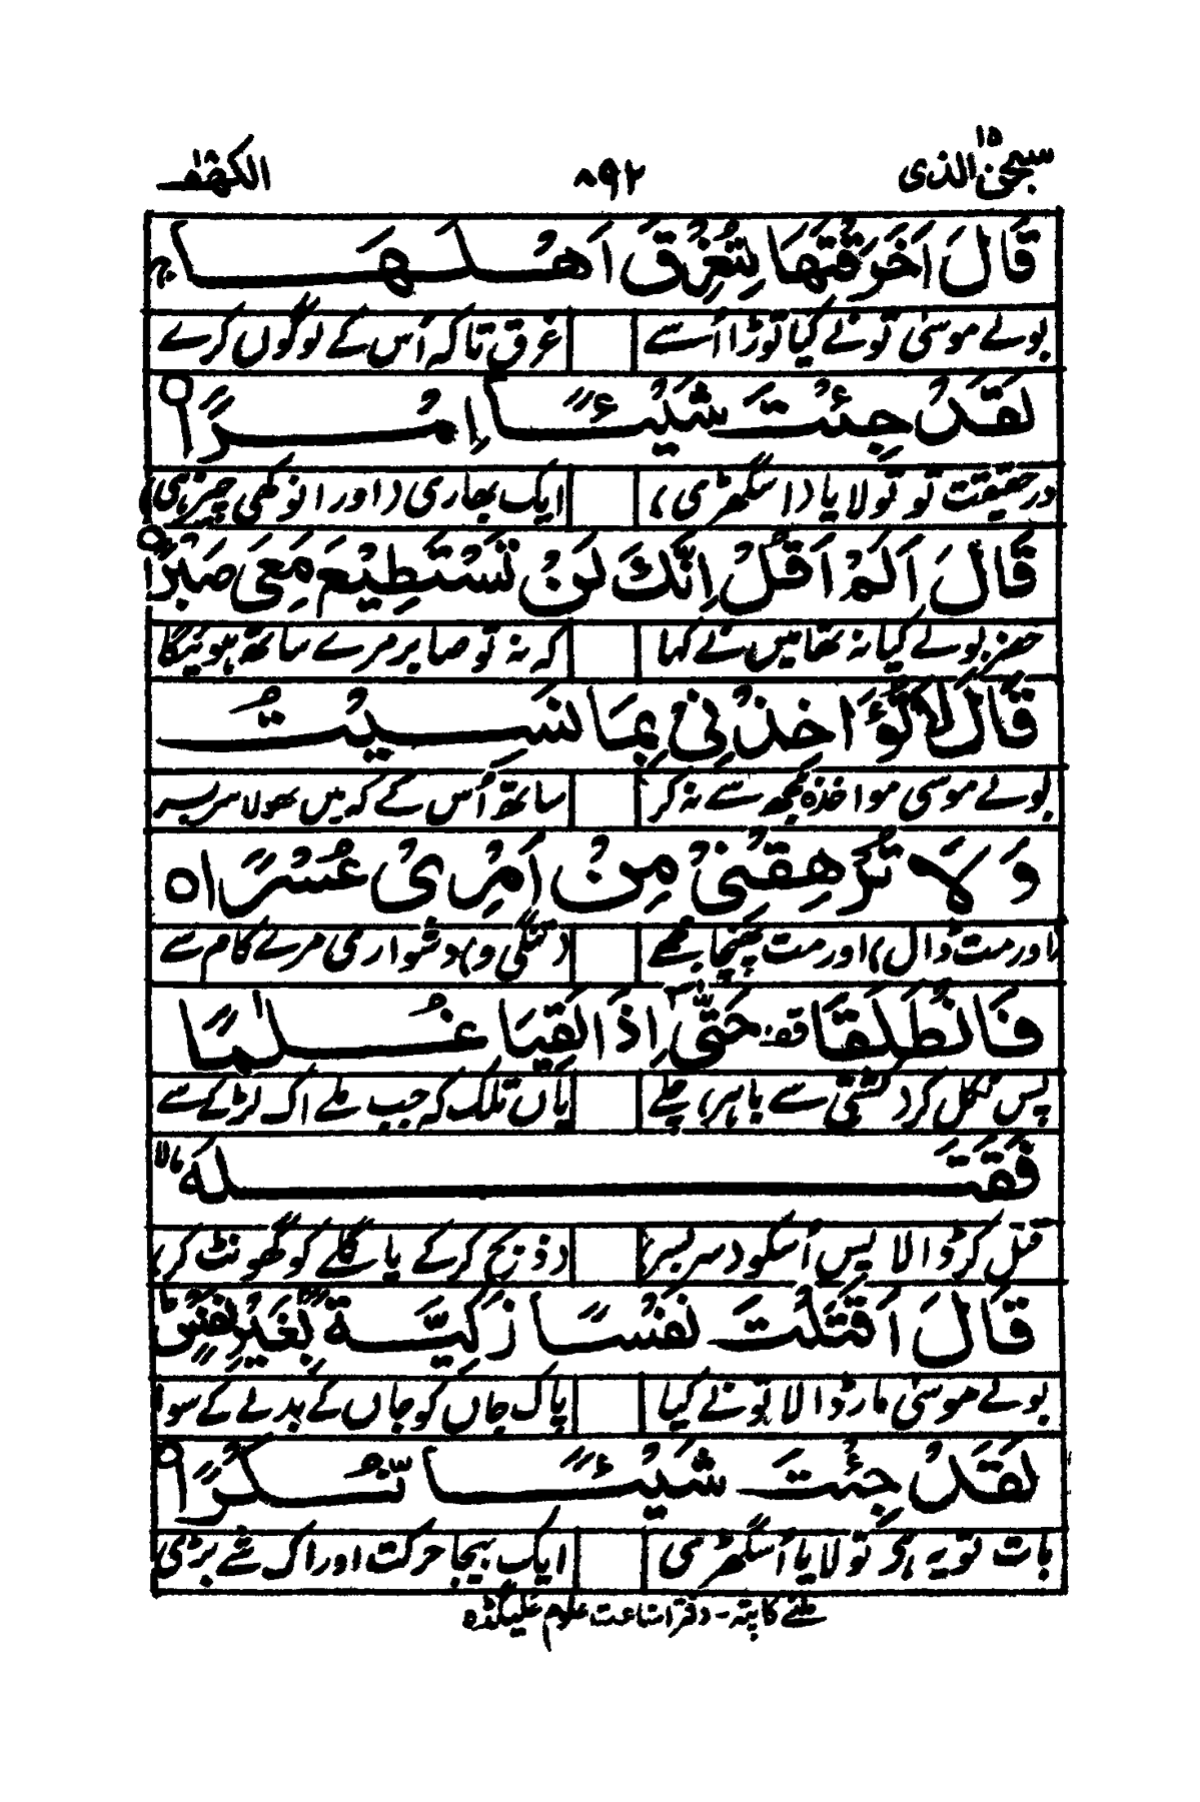 سبحن الذی ۱۵ ۸۹۲ الکهف ۱۸
قَالَ اَخَرَقْتَهَا لِتُغْرِقَ اَهْلَهَا ج
بولے موسیٰ تونے کیا توڑا اُسے غرق تاکہ اُس کے لوگوں کرے
لَقَدْ جِئْتَ شَيْئًا اِمْرًا ○
درحقیقت تو تولایا (اسگھڑی) ایک بھاری (اور انوکھی چیز ہی)
قَالَ اَلَمْ اَقُلْ اِنَّكَ لَنْ تَسْتَطِيْعَ مَعِیَ صَبْرًا ○
خضر بولے کیا نہ تھا میں نے کہا کہ نہ تو صابر مرے ساتھ ہوئیگا
قَالَ لَا تُؤَاخِذْنِیْ بِمَا نَسِيْتُ
بولے موسی مواخذہ مجھ سے نہ کر ساتھ اُس کے کہ میں بھولا سربسر
وَلَا تُرْهِقْنِیْ مِنْ اَمْرِیْ عُسْرًا ○
(اور مت ڈال) اور مت پہنچا مجھے (تنگی و) دشواری مرے کام سے
فَانْطَلَقَا قفہ حَتّٰۤی اِذَا لَقِيَا غُلٰمًا
پس نکل کر (کشتی سے باہر) چلے یاں تلک کہ جب ملے اک لڑکے سے
فَقَتَلَهٗ لا
قتل کر ڈالا پس اُسکو (سربسر) (ذبح کرکے یا گلے کو گھونٹ کر)
قَالَ اَقَتَلْتَ نَفْسًا زَكِيَّةً بِغَيْرِ نَفْسٍ ط
بولے موسیٰ مار ڈالا تونے کیا پاک جاں کو جاں کے بدلے کے سوا
لَقَدْ جِئْتَ شَيْئًا نُّكْرًا ○
بات تو یہ ہے تو لایا اُسگھڑی ایک بیجا حرکت اور اک شے بُری
ملنے کا پتہ - دفتر اشاعت علوم علیگڈہ